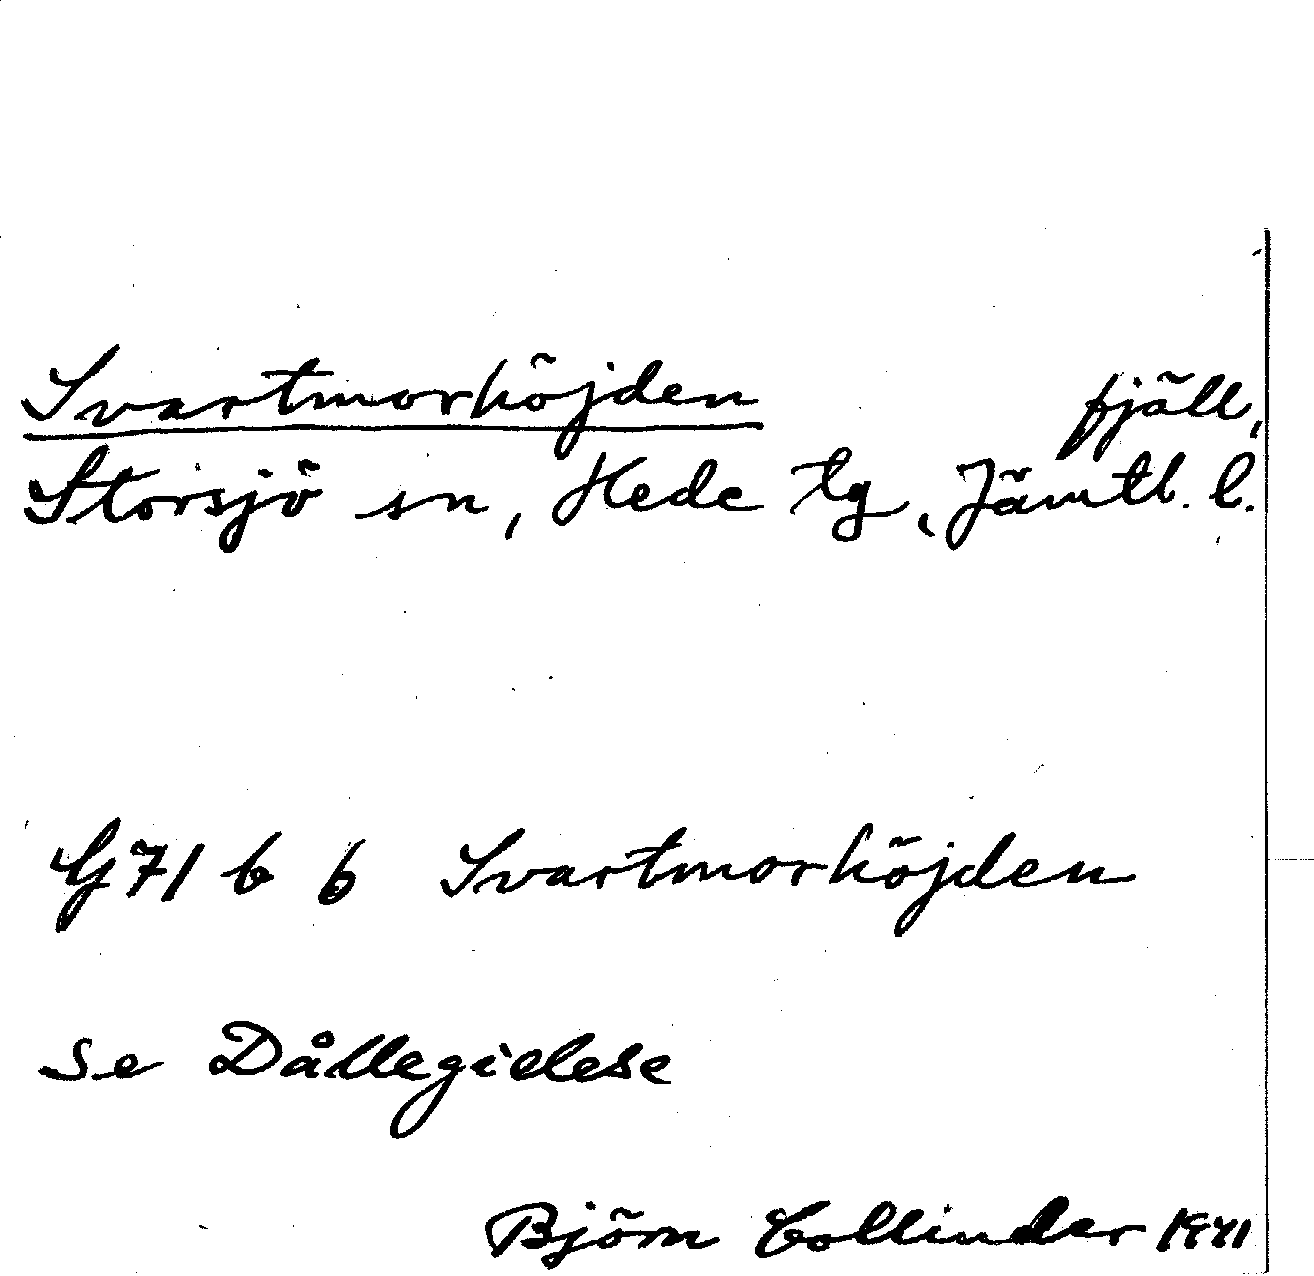 Svartmorhöjden fjäll,
Storsjö sn, Hede tg, Jämtl. l.
G 71 b 6 Svartmorhöjden
se Dållegielese
Björn Collinder 1941